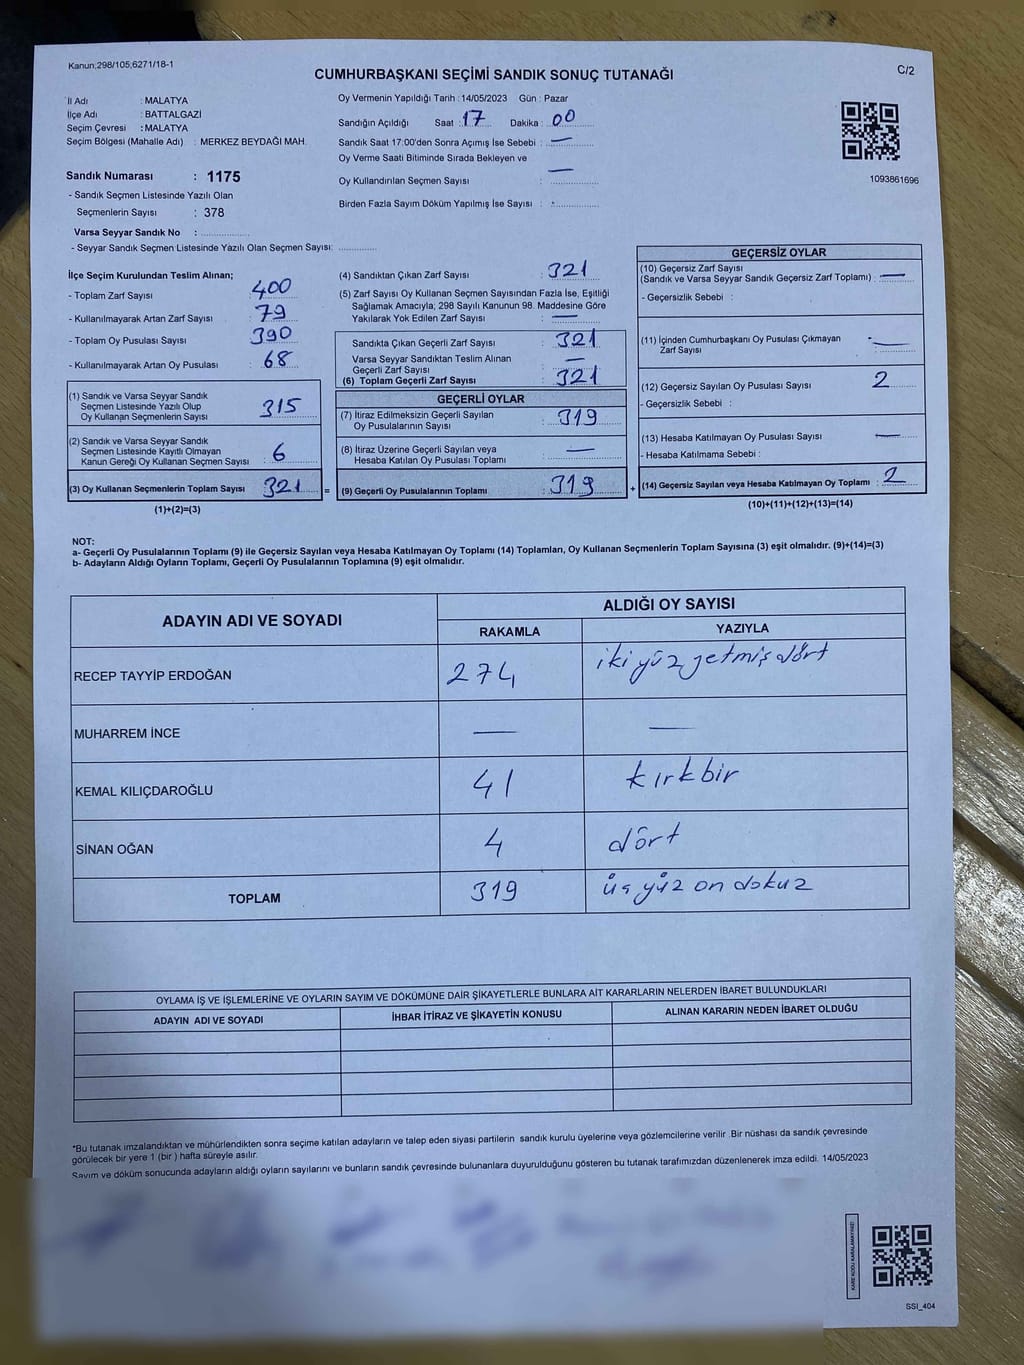 Kanun;298/105;6271/18-1
C/2
CUMHURBAŞKANI SEÇİMİ SANDIK SONUÇ TUTANAĞI
İl Adı : MALATYA
İlçe Adı : BATTALGAZİ
Seçim Çevresi : MALATYA
Seçim Bölgesi (Mahalle Adı) : MERKEZ BEYDAĞI MAH.
Sandık Numarası : 1175
- Sandık Seçmen Listesinde Yazılı Olan
Seçmenlerin Sayısı : 378
Varsa Seyyar Sandık No :
- Seyyar Sandık Seçmen Listesinde Yazılı Olan Seçmen Sayısı:
Oy Vermenin Yapıldığı Tarih : 14/05/2023 Gün : Pazar
Sandığın Açıldığı Saat : 17 Dakika : 00
Sandık Saat 17:00'den Sonra Açımış İse Sebebi : —
Oy Verme Saati Bitiminde Sırada Bekleyen ve
Oy Kullandırılan Seçmen Sayısı : —
Birden Fazla Sayım Döküm Yapılmış İse Sayısı :
1093861696
İlçe Seçim Kurulundan Teslim Alınan;
- Toplam Zarf Sayısı : 400
- Kullanılmayarak Artan Zarf Sayısı : 79
- Toplam Oy Pusulası Sayısı : 390
- Kullanılmayarak Artan Oy Pusulası : 68
(1) Sandık ve Varsa Seyyar Sandık
Seçmen Listesinde Yazılı Olup
Oy Kullanan Seçmenlerin Sayısı : 315
(2) Sandık ve Varsa Seyyar Sandık
Seçmen Listesinde Kayıtlı Olmayan
Kanun Gereği Oy Kullanan Seçmen Sayısı : 6
(3) Oy Kullanan Seçmenlerin Toplam Sayısı : 321
(1)+(2)=(3)
(4) Sandıktan Çıkan Zarf Sayısı : 321
(5) Zarf Sayısı Oy Kullanan Seçmen Sayısından Fazla İse, Eşitliği
Sağlamak Amacıyla; 298 Sayılı Kanunun 98. Maddesine Göre
Yakılarak Yok Edilen Zarf Sayısı : —
Sandıkta Çıkan Geçerli Zarf Sayısı : 321
Varsa Seyyar Sandıktan Teslim Alınan
Geçerli Zarf Sayısı : —
(6) Toplam Geçerli Zarf Sayısı : 321
GEÇERLİ OYLAR
(7) İtiraz Edilmeksizin Geçerli Sayılan
Oy Pusulalarının Sayısı : 319
(8) İtiraz Üzerine Geçerli Sayılan veya
Hesaba Katılan Oy Pusulası Toplamı : —
= (9) Geçerli Oy Pusulalarının Toplamı : 319 +
GEÇERSİZ OYLAR
(10) Geçersiz Zarf Sayısı
(Sandık ve Varsa Seyyar Sandık Geçersiz Zarf Toplamı) : —
- Geçersizlik Sebebi :
(11) İçinden Cumhurbaşkanı Oy Pusulası Çıkmayan
Zarf Sayısı : —
(12) Geçersiz Sayılan Oy Pusulası Sayısı : 2
- Geçersizlik Sebebi :
(13) Hesaba Katılmayan Oy Pusulası Sayısı : —
- Hesaba Katılmama Sebebi :
(14) Geçersiz Sayılan veya Hesaba Katılmayan Oy Toplamı : 2
(10)+(11)+(12)+(13)=(14)
NOT:
a- Geçerli Oy Pusulalarının Toplamı (9) ile Geçersiz Sayılan veya Hesaba Katılmayan Oy Toplamı (14) Toplamları, Oy Kullanan Seçmenlerin Toplam Sayısına (3) eşit olmalıdır. (9)+(14)=(3)
b- Adayların Aldığı Oyların Toplamı, Geçerli Oy Pusulalarının Toplamına (9) eşit olmalıdır.
ADAYIN ADI VE SOYADI
ALDIĞI OY SAYISI
RAKAMLA YAZIYLA
RECEP TAYYİP ERDOĞAN 274 iki yüz yetmiş dört
MUHARREM İNCE — —
KEMAL KILIÇDAROĞLU 41 kırkbir
SİNAN OĞAN 4 dört
TOPLAM 319 üç yüz on dokuz
OYLAMA İŞ VE İŞLEMLERİNE VE OYLARIN SAYIM VE DÖKÜMÜNE DAİR ŞİKAYETLERLE BUNLARA AİT KARARLARIN NELERDEN İBARET BULUNDUKLARI
ADAYIN ADI VE SOYADI İHBAR İTİRAZ VE ŞİKAYETİN KONUSU ALINAN KARARIN NEDEN İBARET OLDUĞU
*Bu tutanak imzalandıktan ve mühürlendikten sonra seçime katılan adayların ve talep eden siyasi partilerin sandık kurulu üyelerine veya gözlemcilerine verilir .Bir nüshası da sandık çevresinde
görülecek bir yere 1 (bir ) hafta süreyle asılır.
Sayım ve döküm sonucunda adayların aldığı oyların sayılarını ve bunların sandık çevresinde bulunanlara duyurulduğunu gösteren bu tutanak tarafımızdan düzenlenerek imza edildi. 14/05/2023
KARE KODU KARALAMAYINIZ!
SSI_404